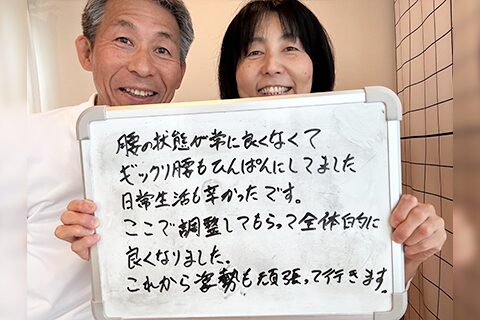 腰の状態が常に良くなくて
ギックリ腰もひんぱんにしてました
日常生活も辛かったです。
ここで調整してもらって全体的に
良くなりました。
これから姿勢も頑張って行きます。